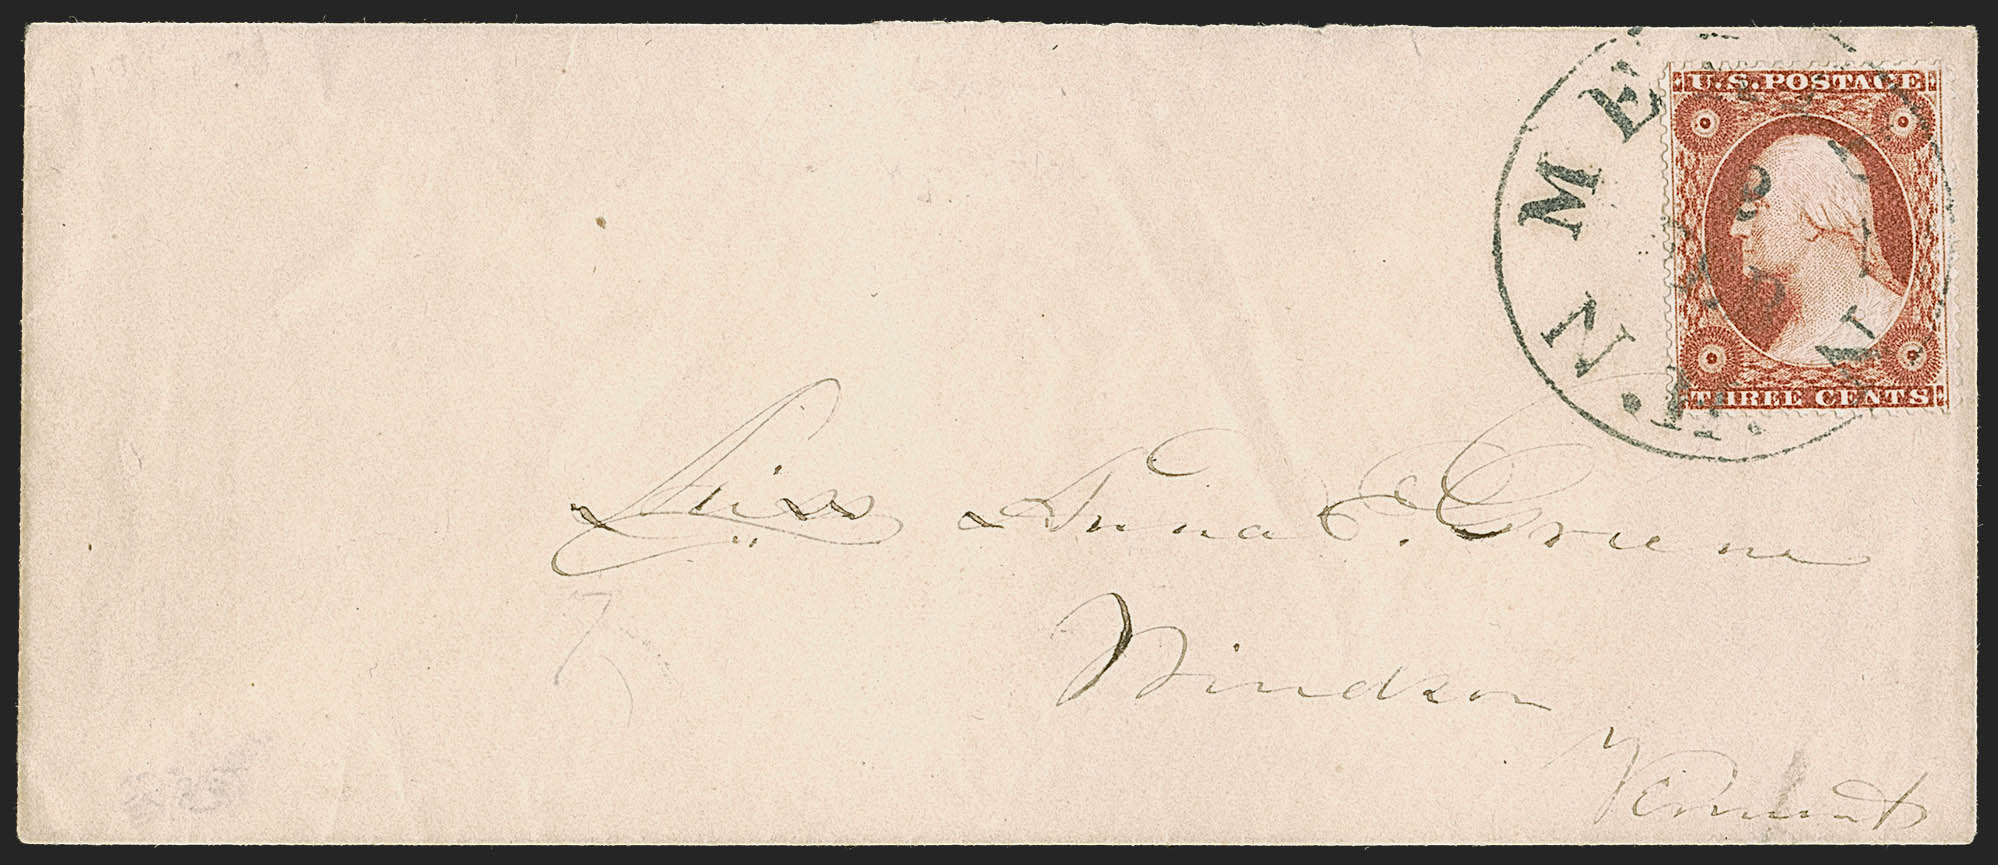 U.S. POSTAGE
THREE CENTS
Miss Anna E. Greene
Windsor
Vermont